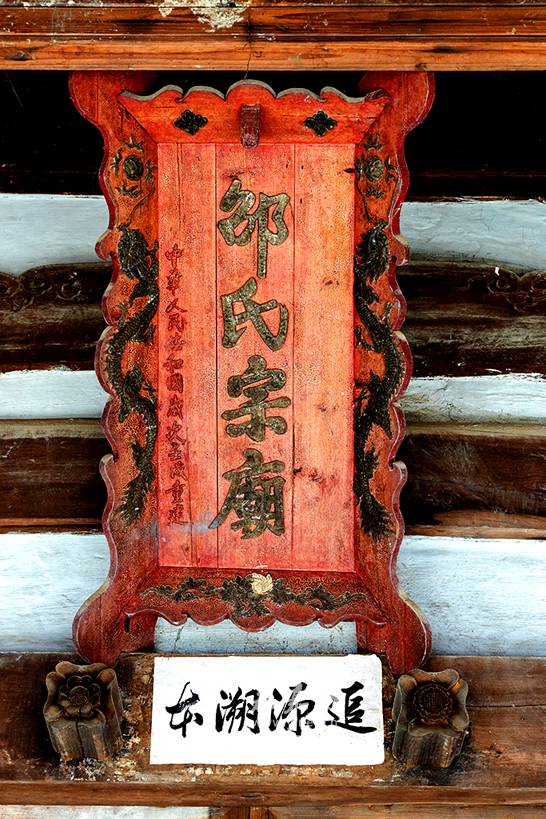 邵氏宗廟
中華人民共和國歲次壬
重建
追源溯本